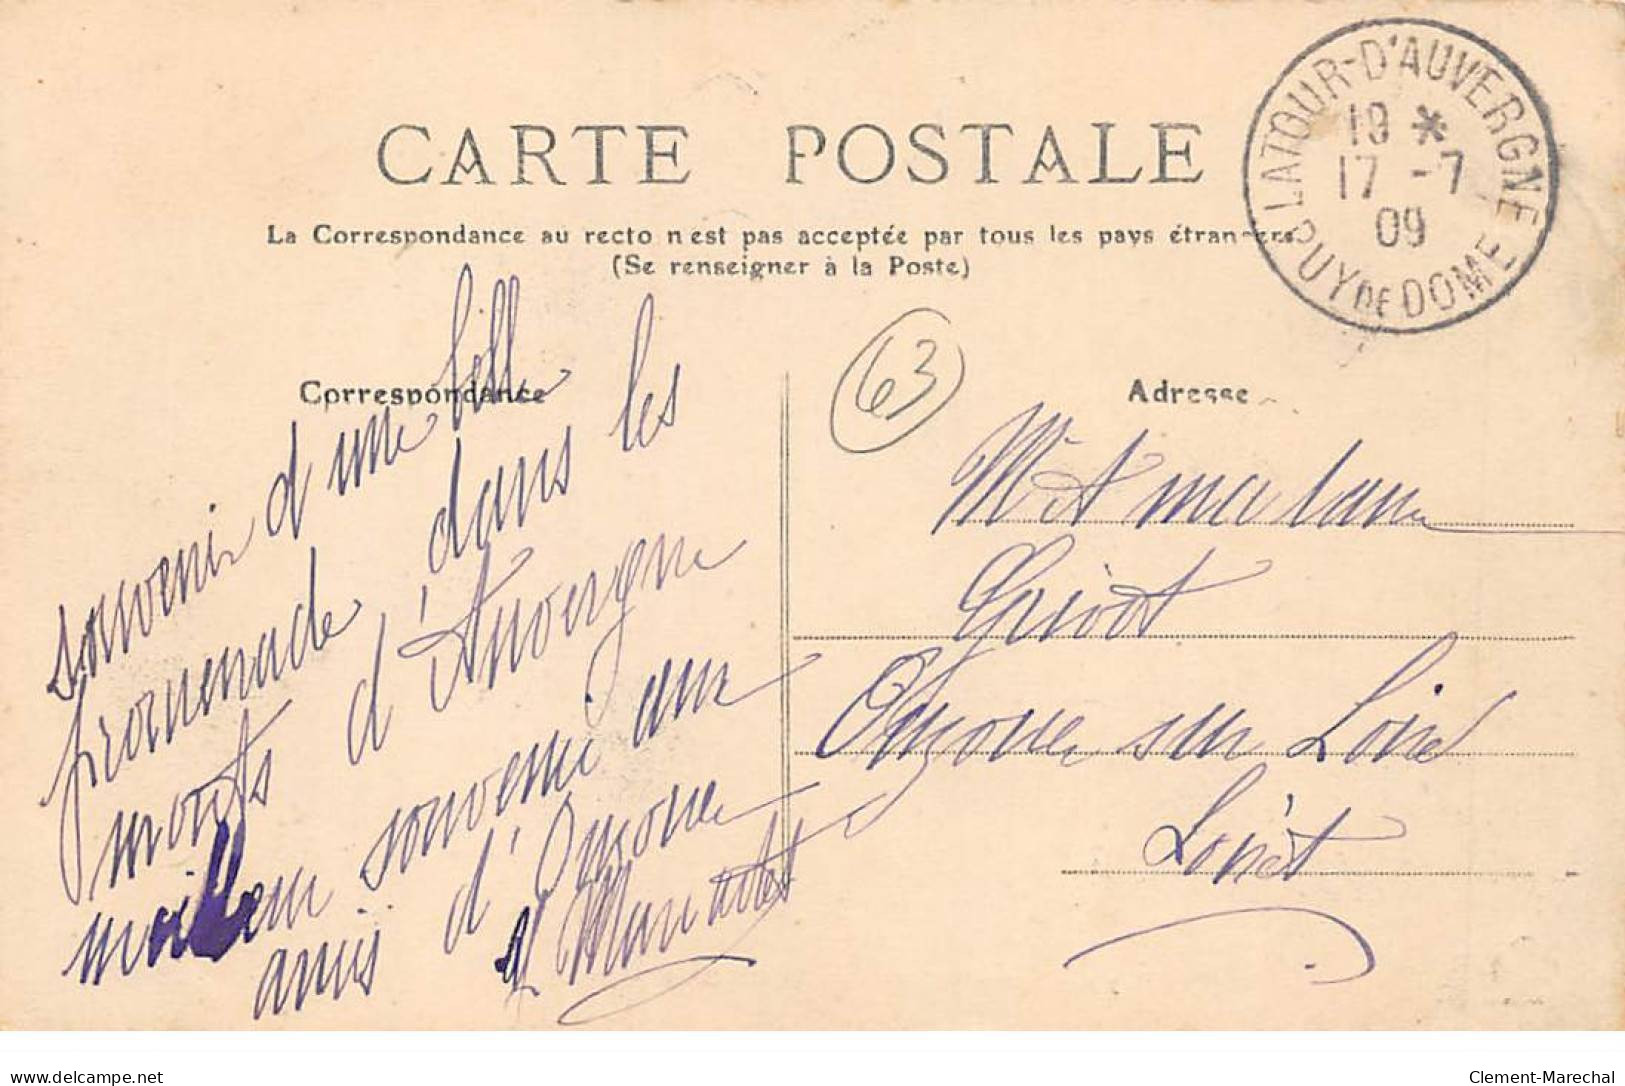 CARTE POSTALE
La Correspondance au recto n'est pas acceptée par tous les pays étrangers
(Se renseigner à la Poste)
LATOUR-D'AUVERGNE
18 *
17 -7
09
PUY DE DOME
Correspondance
Adresse
63
souvenir d'une bell
promenade dans les
monts d'Auvergne
meilleur souvenir aux
amis d'Ouzouer
Mr Amatam
Grivot
Ouzouer sur Loire
Loiret
delcampe.net
Clement-Marechal